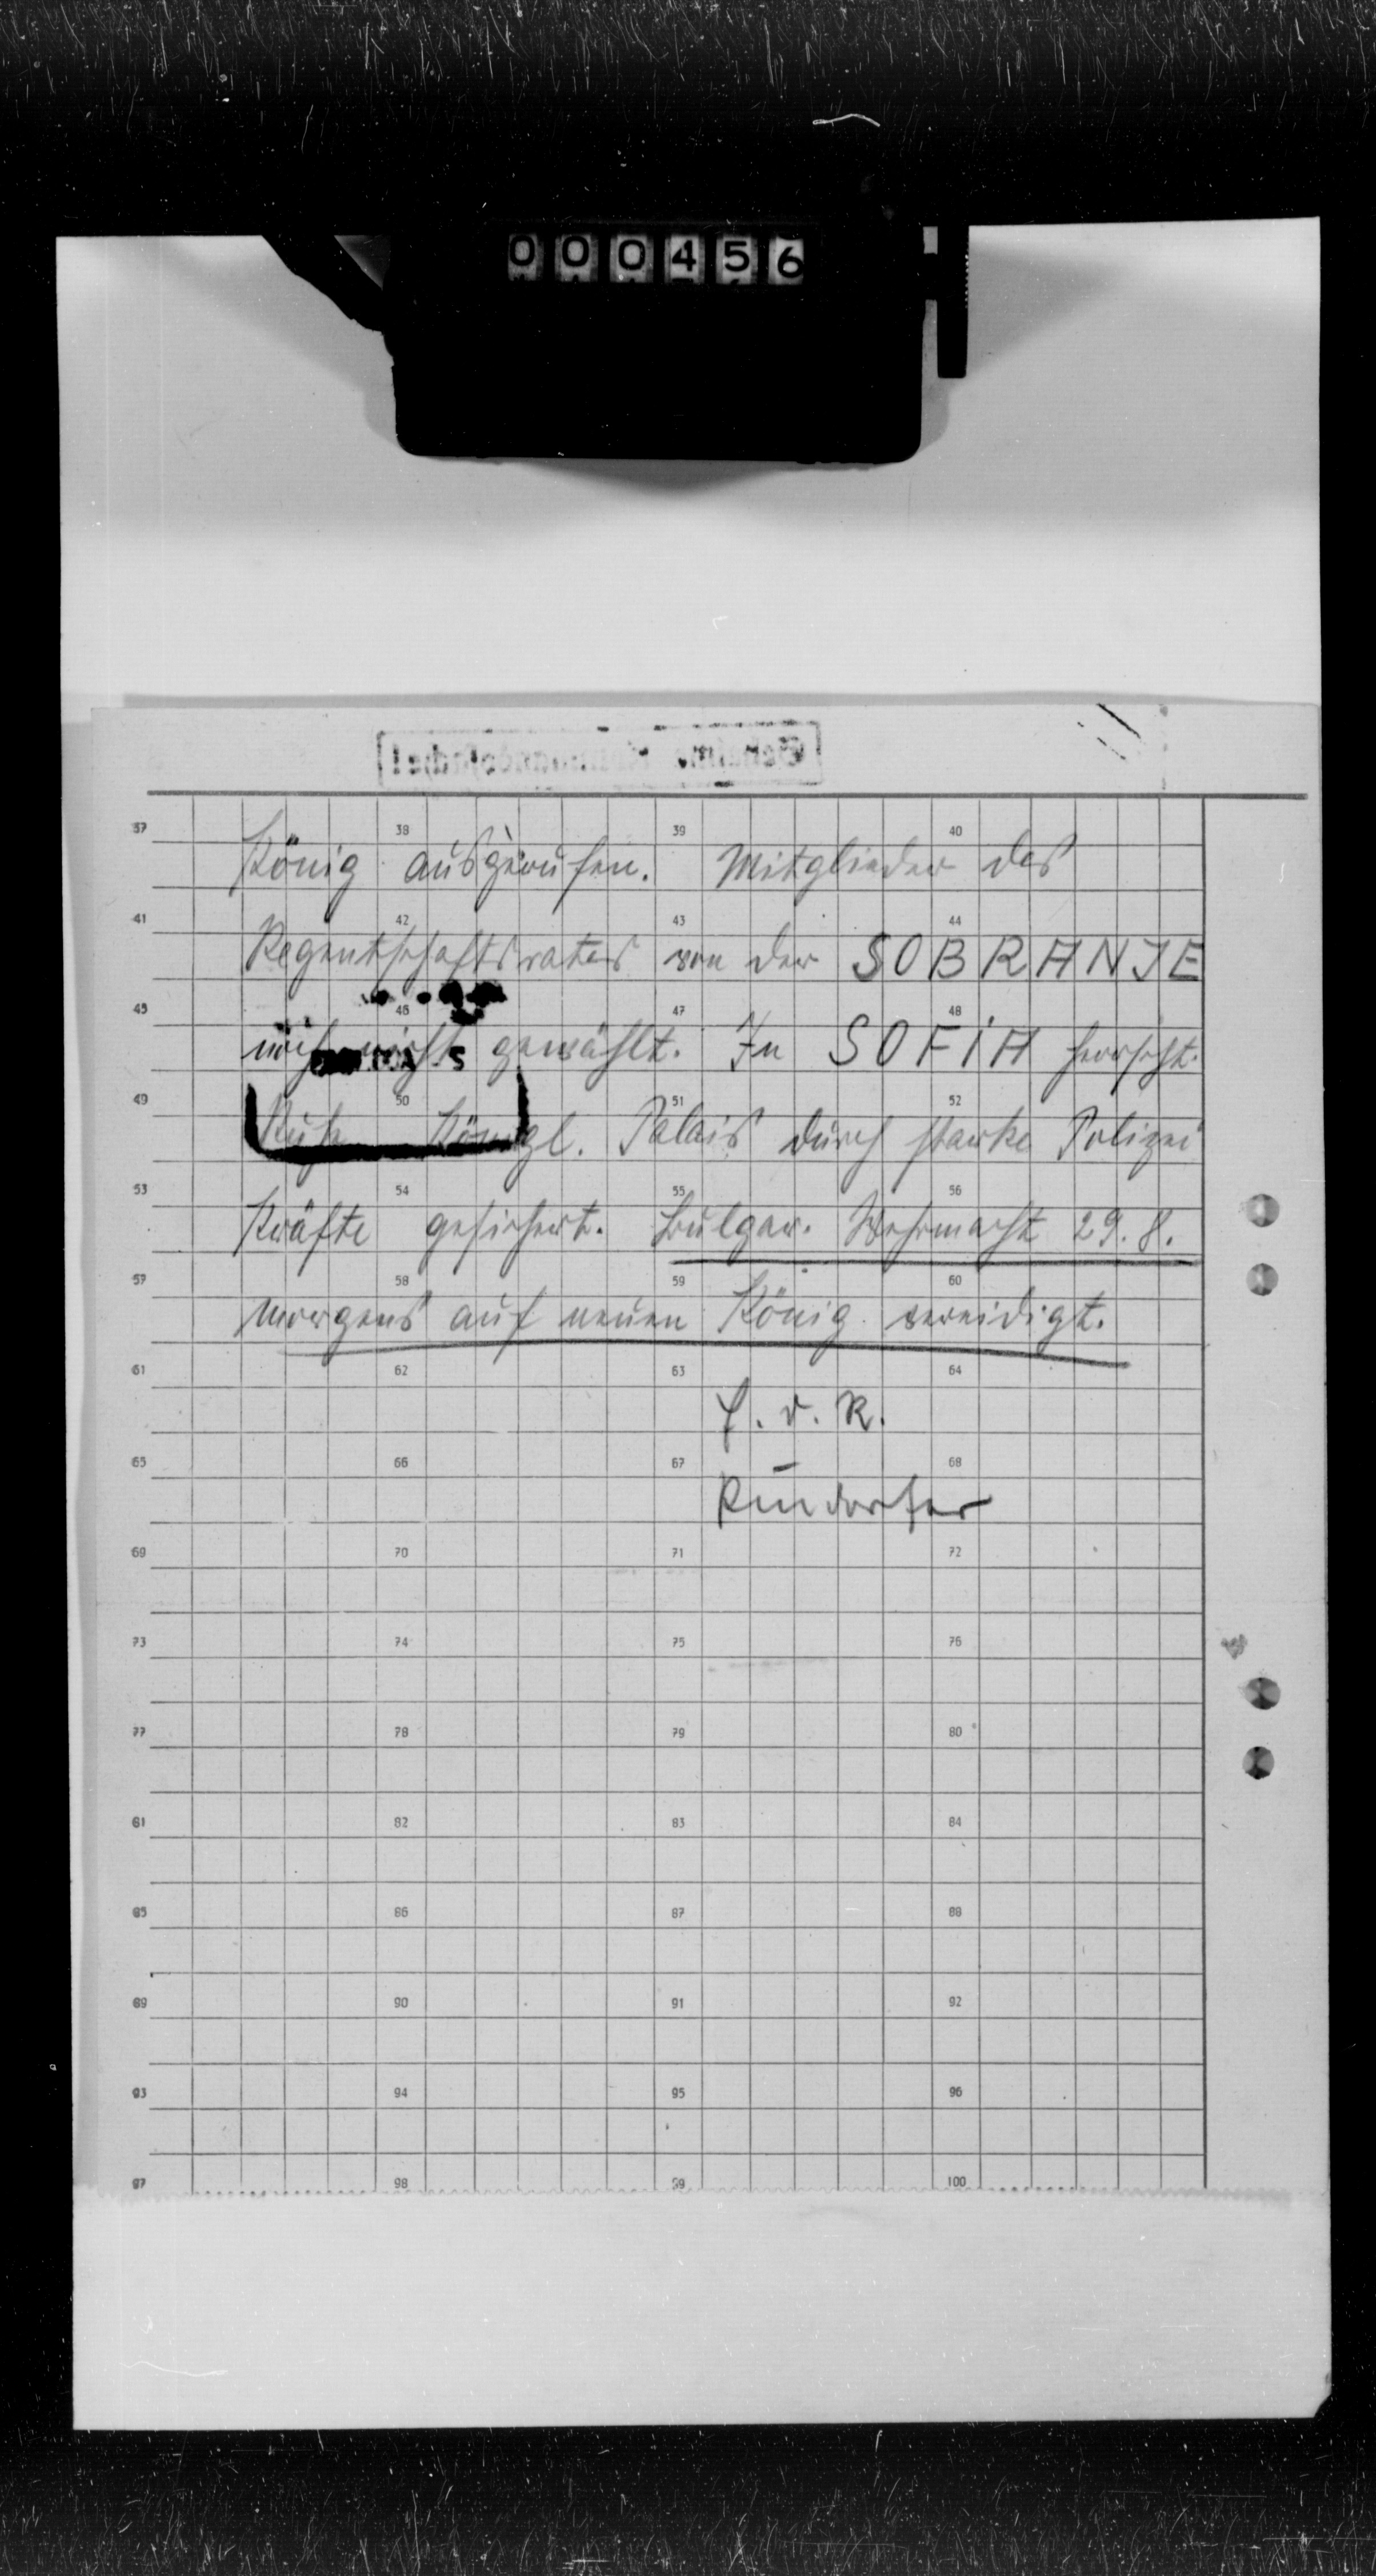 000456
Geheime Kommandosache!
37 38 39 40
König ausgerufen. Mitglieder des
41 42 43 44
Regentschaftsrates von der SOBRANJE
45 46 47 48
nicht gewählt. In SOFIA herrscht
49 50 51 52
Ruhe Königl. Palais durch starke Polizei
53 54 55 56
Kräfte gesichert. Bulgar. Wehrmacht 29.8.
57 58 59 60
morgens auf neuen König vereidigt.
61 62 63 64
f. d. R.
65 66 67 68
69 70 71 72
73 74 75 76
77 78 79 80
81 82 83 84
85 86 87 88
89 90 91 92
93 94 95 96
97 98 99 100